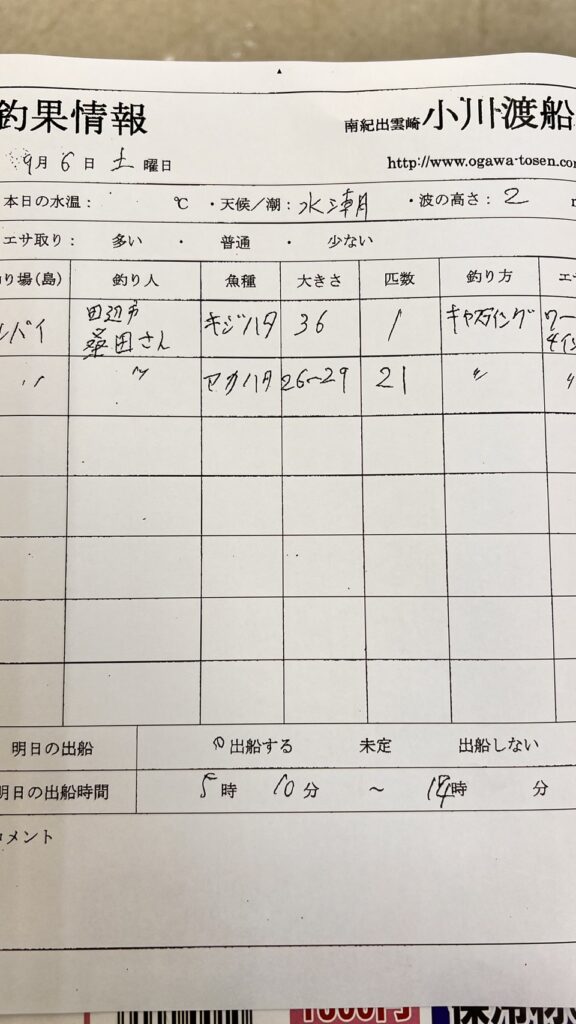 釣果情報
南紀出雲崎 小川渡船
9月 6日 土曜日
http://www.ogawa-tosen.com
本日の水温： ℃ ・天候／潮： ・波の高さ： 2
エサ取り： 多い ・ 普通 ・ 少ない
り場(島) 釣り人 魚種 大きさ 匹数 釣り方 エ
パイ 田辺市 桑田さん キジハタ 36 1 キャスティング ワー 4イン
〃 〃 アカハタ 26~29 21 〃 〃
明日の出船 出船する 未定 出船しない
明日の出船時間 5時 10分 ～ 時 分
コメント
1000円 保冷材